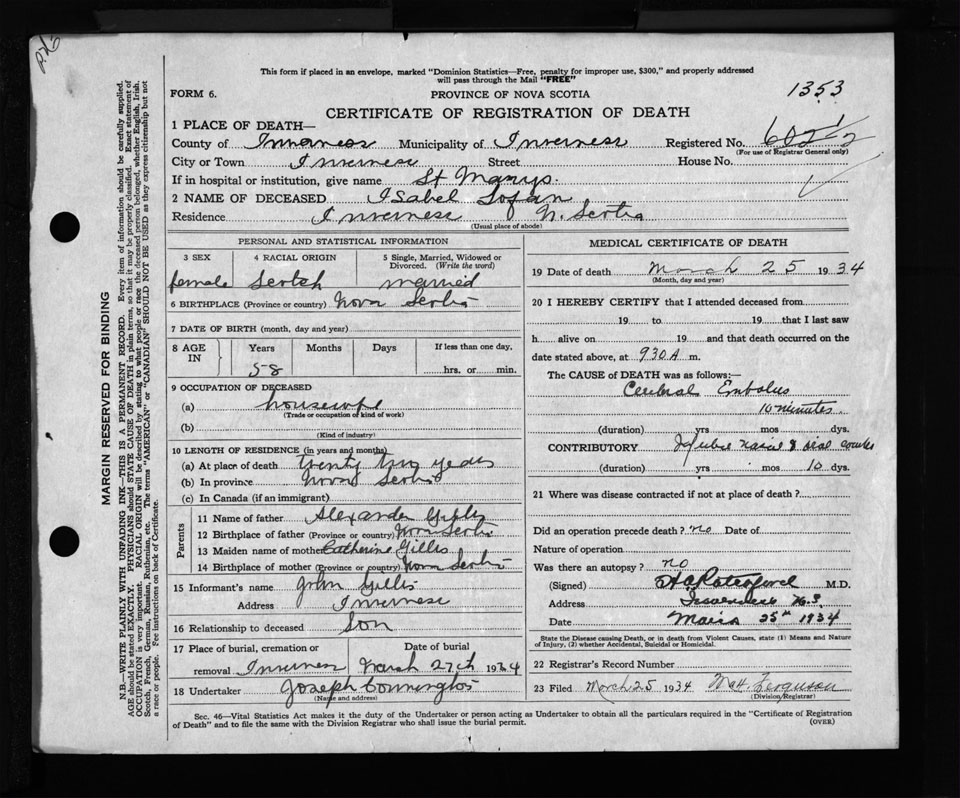 226
This form if placed in an envelope, marked "Dominion Statistics—Free, penalty for improper use, $300," and properly addressed
will pass through the Mail "FREE"
FORM 6. PROVINCE OF NOVA SCOTIA 1353
CERTIFICATE OF REGISTRATION OF DEATH
1 PLACE OF DEATH—
County of Inverness Municipality of Inverness Registered No.
(For use of Registrar General only)
City or Town Inverness Street House No.
If in hospital or institution, give name St Marys.
2 NAME OF DECEASED Isabel
Residence Inverness N. Scotia
(Usual place of abode)
PERSONAL AND STATISTICAL INFORMATION
3 SEX 4 RACIAL ORIGIN 5 Single, Married, Widowed or
Divorced. (Write the word)
female Scotch married
6 BIRTHPLACE (Province or country) Nova Scotia
7 DATE OF BIRTH (month, day and year)
8 AGE IN Years Months Days If less than one day,
58 hrs. or min.
9 OCCUPATION OF DECEASED
(a) housewife
(Trade or occupation or kind of work)
(b)
(Kind of industry)
10 LENGTH OF RESIDENCE (in years and months)
(a) At place of death twenty two years
(b) In province Nova Scotia
(c) In Canada (if an immigrant)
Parents
11 Name of father Alexander Gillis
12 Birthplace of father (Province or country) Nova Scotia
13 Maiden name of mother Catherine Gillis
14 Birthplace of mother (Province or country) Nova Scotia
15 Informant's name John Gillis
Address Inverness
16 Relationship to deceased Son
17 Place of burial, cremation or Date of burial
removal Inverness March 27th 1934
18 Undertaker Joseph
(Name and address)
MEDICAL CERTIFICATE OF DEATH
19 Date of death March 25 1934
(Month, day and year)
20 I HEREBY CERTIFY that I attended deceased from
19 to 19 that I last saw
h alive on 19 and that death occurred on the
date stated above, at 930 A m.
The CAUSE of DEATH was as follows:—
Cerebral Embolus
10 minutes.
(duration) yrs mos dys.
CONTRIBUTORY
(duration) yrs mos 10 dys.
21 Where was disease contracted if not at place of death?
Did an operation precede death? no Date of
Nature of operation
Was there an autopsy? no
(Signed) M.D.
Address Inverness N.S.
Date March 25th 1934
State the Disease causing Death, or in death from Violent Causes, state (1) Means and Nature
of Injury, (2) whether Accidental, Suicidal or Homicidal.
22 Registrar's Record Number
23 Filed March 25 1934 Ferguson
(Division Registrar)
Sec. 46—Vital Statistics Act makes it the duty of the Undertaker or person acting as Undertaker to obtain all the particulars required in the "Certificate of Registration
of Death" and to file the same with the Division Registrar who shall issue the burial permit. (OVER)
MARGIN RESERVED FOR BINDING
N.B.—WRITE PLAINLY WITH UNFADING INK—THIS IS A PERMANENT RECORD. Every item of information should be carefully supplied.
AGE should be stated EXACTLY. PHYSICIANS should STATE CAUSE OF DEATH in plain terms, so that it may be properly classified. Exact statement of
OCCUPATION is very important. RACIAL ORIGIN will be described by stating to what people or race the deceased person belonged, whether English, Irish,
Scotch, French, German, Russian, Ruthenian, etc. The terms "AMERICAN" or "CANADIAN" SHOULD NOT BE USED as they express citizenship but not
a race or people. Fee instructions on back of Certificate.